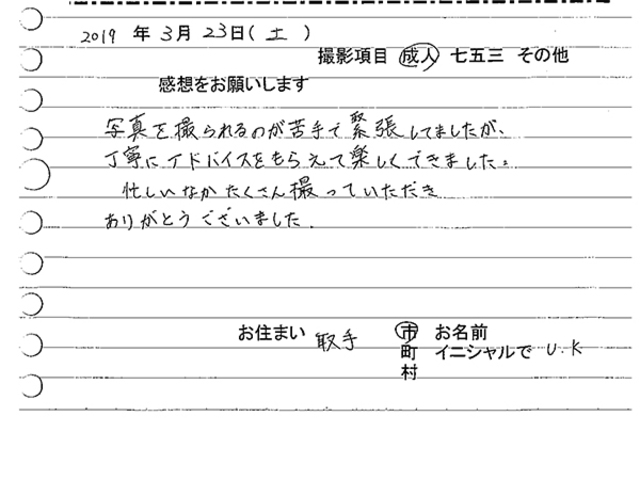 2019 年 3月 23日(土)
撮影項目 成人 七五三 その他
感想をお願いします
写真を撮られるのが苦手で緊張してましたが、
丁寧にアドバイスをもらえて楽しくできました。
忙しいなかたくさん撮っていただき
ありがとうございました.
お住まい 取手 市 お名前
町 イニシャルで U.K
村